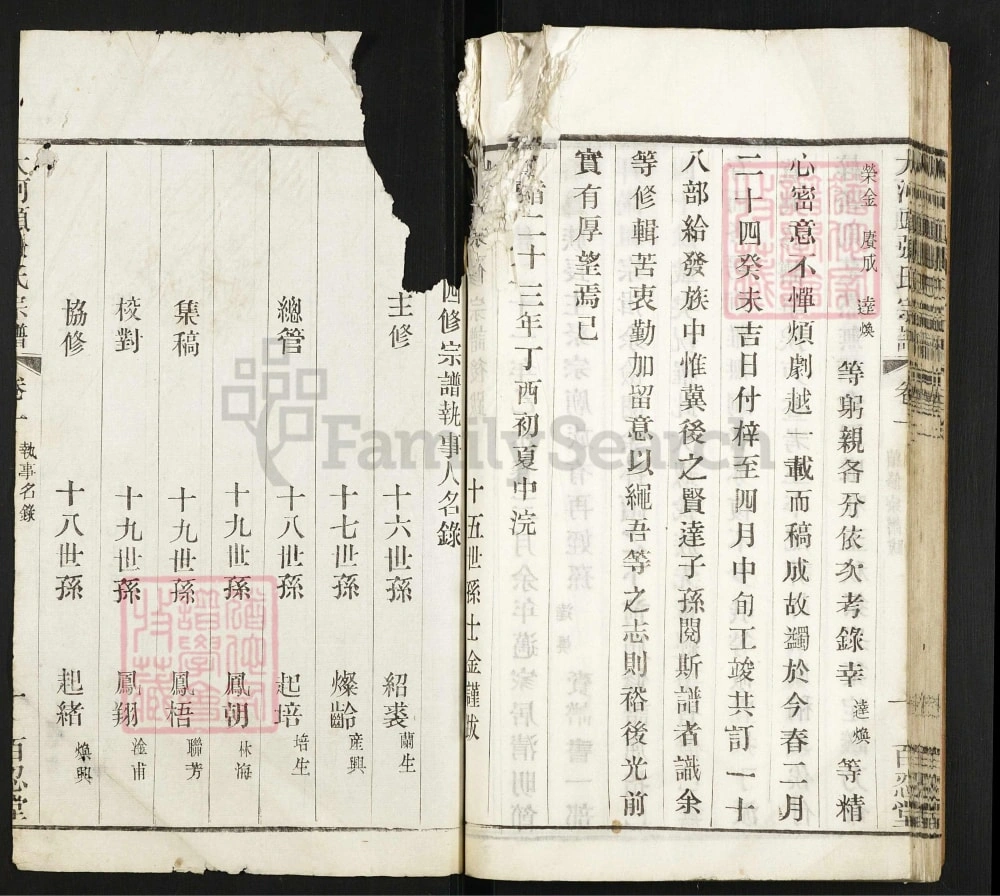 大河頭張氏宗譜 卷一 一 百忍堂
榮金 賡成 達煥 等躬親各分依次考錄幸 達煥 等精
心密意不憚煩劇越一載而稿成故蠲於今春二月
二十四癸未吉日付梓至四月中旬工竣共訂一十
八部給發族中惟冀後之賢達子孫閱斯譜者識余
等修輯苦衷勤加留意以繩吾等之志則裕後光前
實有厚望焉已
緒二十三年丁酉初夏中浣
十五世孫士金謹跋
四修宗譜執事人名錄
主修 十六世孫 紹裘 蘭生
十七世孫 燦齡 産興
總管 十八世孫 起培 培生
十九世孫 鳳朝 林海
集稿 十九世孫 鳳梧 聯芳
校對 十九世孫 鳳翔 淦甫
協修 十八世孫 起緒 煥興
氏宗譜 卷一 執事名錄 一 百忍堂
FamilySearch